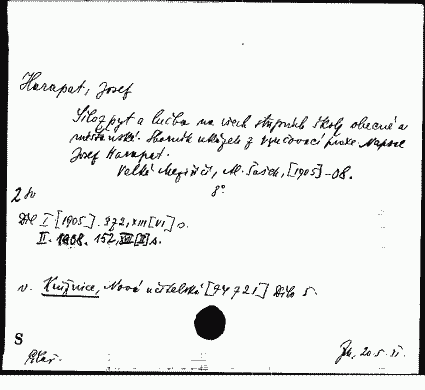 Harapat, Josef
Silozpyt a lučba na všech stupních školy obecné a
měšťanské. Sborník ukázek z vyučovací praxe. Napsal
Josef Harapat.
Velké Meziříčí, M. Šašek, [1905]-08.
8°
2 sv
Díl I [1905]. 372, XIII [VI] s.
II. 1908. 152, s.
v. Knižnice, Nová učitelská [94721] Dílo 5.
S
20.5.